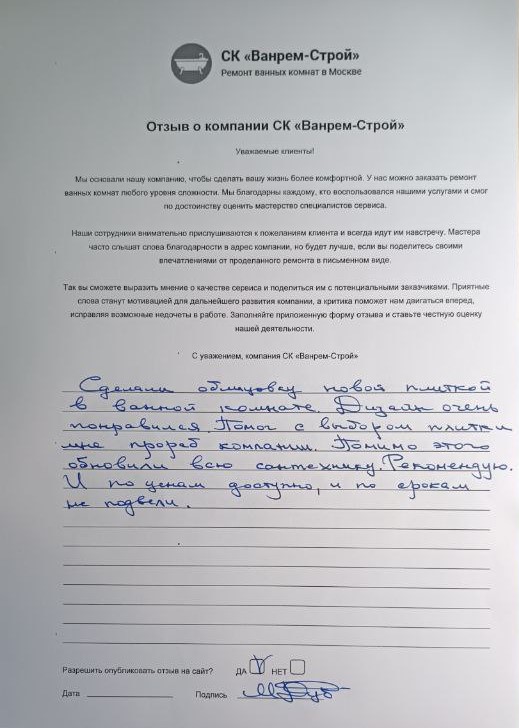 СК «Ванрем-Строй»
Ремонт ванных комнат в Москве
Отзыв о компании СК «Ванрем-Строй»
Уважаемые клиенты!
Мы основали нашу компанию, чтобы сделать вашу жизнь более комфортной. У нас можно заказать ремонт
ванных комнат любого уровня сложности. Мы благодарны каждому, кто воспользовался нашими услугами и смог
по достоинству оценить мастерство специалистов сервиса.
Наши сотрудники внимательно прислушиваются к пожеланиям клиента и всегда идут им навстречу. Мастера
часто слышат слова благодарности в адрес компании, но будет лучше, если вы поделитесь своими
впечатлениями от проделанного ремонта в письменном виде.
Так вы сможете выразить мнение о качестве сервиса и поделиться им с потенциальными заказчиками. Приятные
слова станут мотивацией для дальнейшего развития компании, а критика поможет нам двигаться вперед,
исправляя возможные недочеты в работе. Заполняйте приложенную форму отзыва и ставьте честную оценку
нашей деятельности.
С уважением, компания СК «Ванрем-Строй»
Сделали облицовку новой плиткой
в ванной комнате. Дизайн очень
понравился. Помог с выбором плитки
мне прораб компании. Помимо этого
обновили всю сантехнику. Рекомендую.
И по ценам доступно, и по срокам
не подвели.
Разрешить опубликовать отзыв на сайт? ДА НЕТ
Дата Подпись